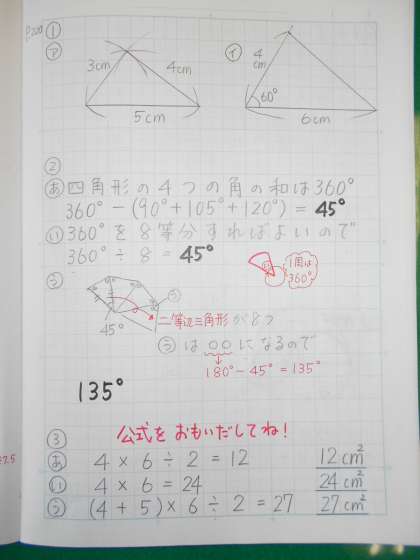 P220 ①
ア
3cm 4cm
5cm
イ
4cm
60°
6cm
②
あ 四角形の4つの角の和は360°
360° − (90° + 105° + 120°) = 45°
い 360°を8等分すればよいので
360° ÷ 8 = 45°
1周は
360°
う
45°
う
二等辺三角形が8つ
うは○○になるので
180° − 45° = 135°
135°
③ 公式をおもいだしてね!
あ 4 × 6 ÷ 2 = 12 12cm²
い 4 × 6 = 24 24cm²
う (4 + 5) × 6 ÷ 2 = 27 27cm²